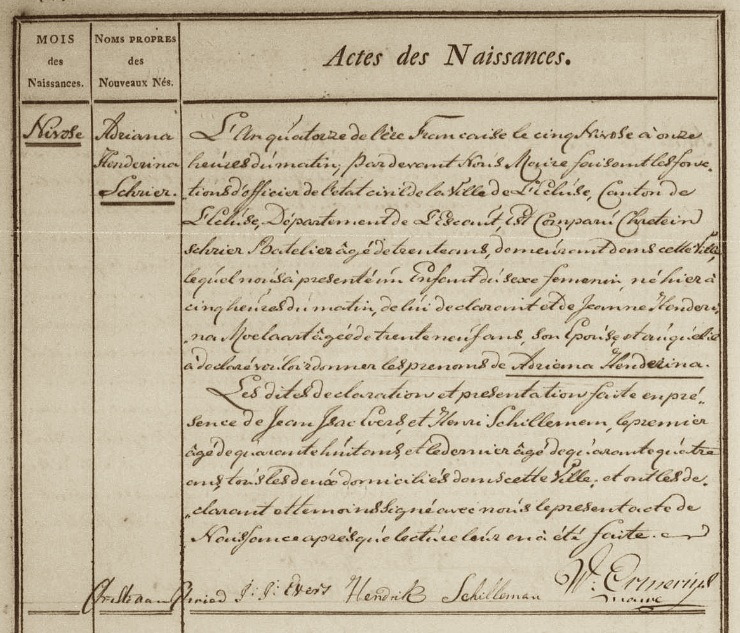 MOIS
des
Naissances.
NOMS PROPRES
des
Nouveaux Nés.
Actes des Naissances.
Nivose
Adriana
Henderina
Schrier.
L'An quatorze de l'ère Francaise le cinq Nivose à onze
heures du matin, Pardevant Nous Maire faisant les fonc-
tions d'officier de l'etat civil de la Ville de L'Ecluse, Canton de
L'Ecluse, Département de L'Escaut, Est Comparu Chretein
schrier Batelier âgé de trente ans, domeurant dans cette Ville
lequel nous à presenté un Enfant du sexe femenin, né hier à
cinq heures du matin, de lui declarant et de Jeanne Henderi-
na Moelaart âgée de trente neuf ans, son Epouse, et auquel il
à declaré vouloir donner les prenoms de Adriana Henderina.
Les dites declaration et presentation faite en pré-
sence de Jean Jsac Evers, et Henri Schilleman, le premier
âgé de quarante huit ans, et le dernier âgé de quarante quatre
ans, tous les deux domiciliés dans cette Ville. et ont les de-
clarant et temoins signé avec nous le present acte de
Naissance après que lecture leur en à été faite.
J: J: Evers Hendrik Schilleman
maire